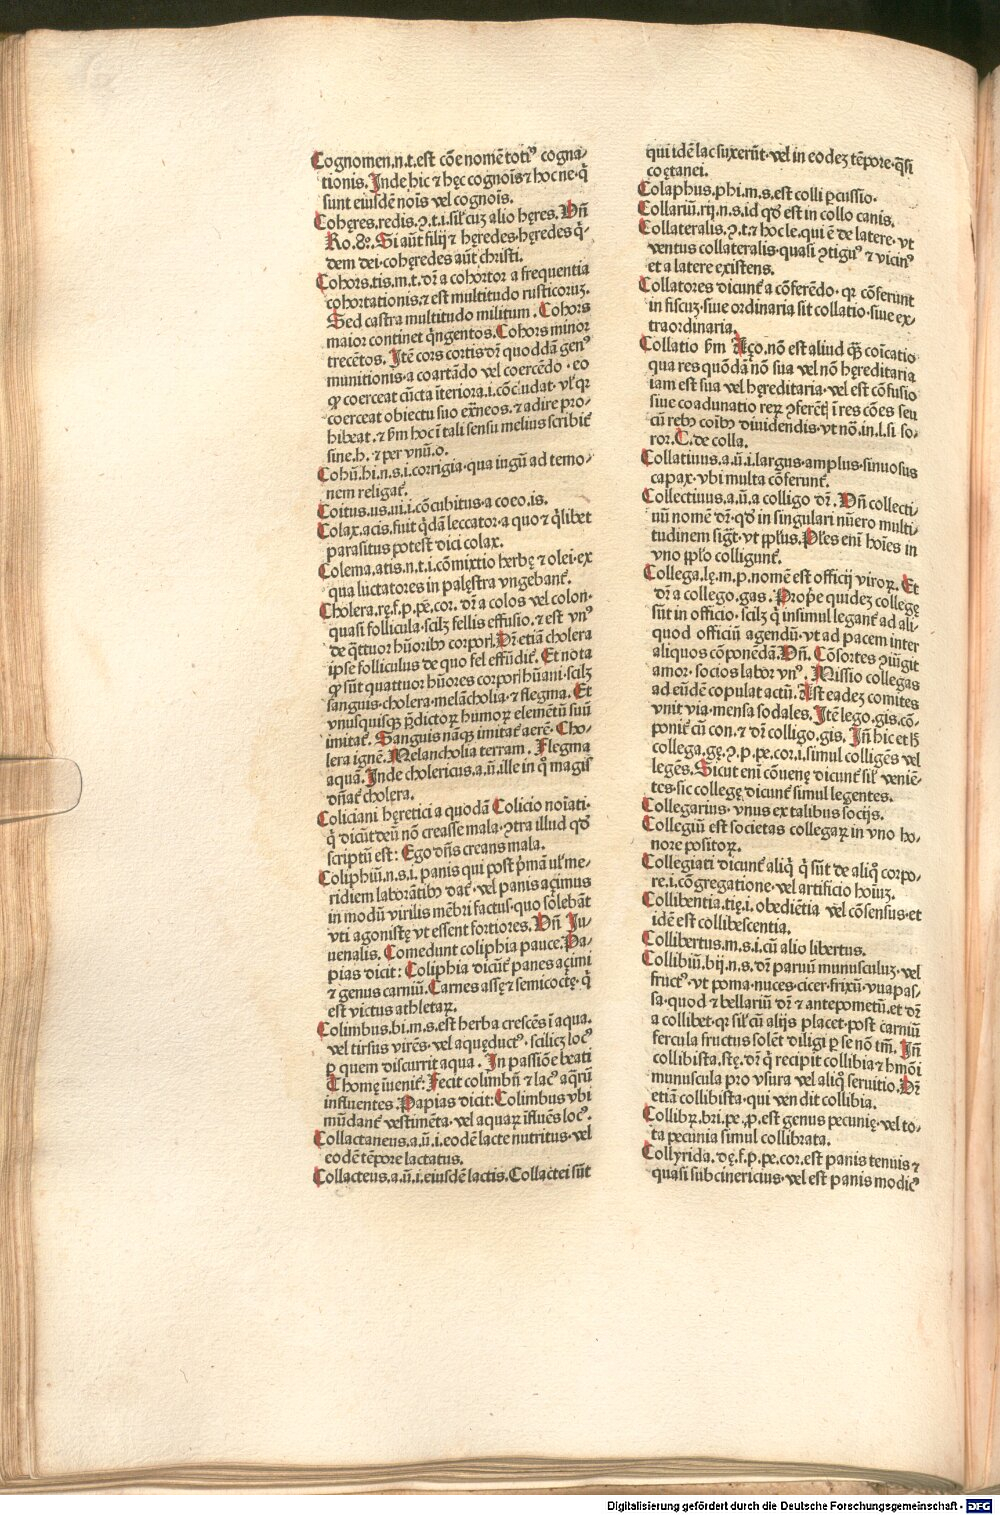 Cognomen.n.t.est cōe nomē totiꝰ cogna-
tionis. Inde hic ⁊ hęc cognoīs ⁊ hoc ne·q̄
sunt eiusdē noīs vel cognoīs.
Cohęres.redis.ꝯ.t.i.sil̄ cuz alio hęres. Vn̄
Ro.8: Si aūt filij ⁊ hęredes·hęredes q̄-
dem dei·cohęredes aūt christi.
Cohors.tis.m.t. dr̄ a cohortor a frequentia
cohortationis.⁊ est multitudo rusticoruz.
Sed castra multitudo militum. Cohors
maior continet q̄ngentos. Cohors minor
trecētos. Itē cors cortis dr̄ quoddā genꝰ
munitionis·a coartādo vel coercēdo·eo
ꝙ coerceat cūcta īteriora.i.cōcludat· vl̄ qꝛ
coerceat obiectu suo ex̄neos.⁊ adire pro-
hibeat.⁊ ẜm hoc ī tali sensu melius scribit̄
sine.h. ⁊ per vnū.o.
Cohū.hi.n.s.i.corrigia·qua ingū ad temo-
nem religat̄.
Coitus.us.ui.i.cōcubitus·a coeo.is.
Colax.acis.fuit q̄dā leccator·a quo ⁊ q̄libet
parasitus potest dici colax.
Colema.atis.n.t.i.cōmixtio herbę ⁊ olei·ex
qua luctatores in palęstra vngebant̄.
Cholera.rę.f.p.pe.cor. dr̄ a colos vel colon·
quasi follicula·scilz fellis effusio.⁊ est vnꝰ
de q̄ttuor hūoribꝰ corporꝭ. Dr̄ etiā cholera
ipse folliculus de quo fel effūdit̄. Et nota
ꝙ sūt quattuor hūores corporꝭ hūani·scilz
sanguis·cholera·melācholia·⁊ flegma. Et
vnusquisqꝫ p̄dictoꝝ humoꝝ elementū suū
imitat̄. Sanguis nāqꝫ imitat̄ aerē. Cho-
lera ignē. Melancholia terram. Flegma
aquā. Inde cholericus.a.ū.ille in q̊ magis
dn̄at̄ cholera.
Coliciani hęretici a quodā Colicio noīati·
q̄ dicūt deū nō creasse mala·ꝯtra illud qd̓
scriptū est: Ego dn̄s creans mala.
Coliphiū.n.s.i. panis qui post p̄mā vl̓ me-
ridiem laborātibꝰ dat̄·vel panis açimus
in modū virilis mēbri factus·quo solebāt
vti agonistę vt essent fortiores. Vn̄ Iu-
uenalis. Comedunt coliphia pauce. Pa-
pias dicit: Coliphia dicūt̄ panes açimi
⁊ genus carniū. Carnes assę ⁊ semicoctę·q̄
est victus athletaꝝ.
Colimbus.bi.m.s.est herba crescēs ī aqua.
vel tirsus virēs·vel aquęductꝰ·scilicz locꝰ
ꝑ quem discurrit aqua. In passiōe beati
Thomę īuenit̄: Fecit colimbū ⁊ lacꝰ aq̄rū
influentes. Papias dicit: Colimbus vbi
mūdant̄ vestimēta·vel aquaꝝ īfluēs locꝰ.
Collactaneus.a.ū.i.eodē lacte nutritus·vel
eodē tēpore lactatus.
Collacteus.a.ū.i.eiusdē lactis. Collactei sūt
qui idē lac suxerūt·vel in eodez tēpore·q̄si
coętanei.
Colaphus.phi.m.s.est colli ꝑcussio.
Collariū.rij.n.s.id qd̓ est in collo canis.
Collateralis.ꝯ.t.⁊ hoc le.qui ē de latere·vt
ventus collateralis·quasi ꝯtiguꝰ ⁊ vicinꝰ
et a latere existens.
Collatores dicunt̄ a cōferēdo·qꝛ cōferunt
in fiscuz·siue ordinaria sit collatio·siue ex-
traordinaria.
Collatio ẜm Açō.nō est aliud qꝫ̄ coīcatio
qua res quōdā nō sua vel nō hęreditaria
iam est sua vel hęreditaria·vel est cōfusio
siue coadunatio reꝝ ꝯferētꝭ ī res cōes seu
cū rebꝰ coībꝰ diuidendis·vt nō.in.l.si so-
ror.C.de colla.
Collatiuus.a.ū.i.largus·amplus·sinuosus
capax·vbi multa cōferunt̄.
Collectiuus.a.ū.a colligo dr̄. Vn̄ collecti-
uū nomē dr̄·qd̓ in singulari nūero multi-
tudinem sigt̄·vt pp̄lus. Pl̓es enī hoīes in
vno pp̄lo colligunt̄.
Collega.lę.m.p.nomē est officij viroꝝ. Et
dr̄ a collego.gas. Prop̄e quidez collegę
sūt in officio·scilz q̄ insimul legant̄ ad ali-
quod officiū agendū·vt ad pacem inter
aliquos cōponēdā. Vn̄. Cōsortes ꝯiūgit
amor·socios labor vnꝰ. Missio collegas
ad eūdē copulat actū. Ast eadez comites
vnit via·mensa sodales. Itē lego.gis.cō-
ponit̄ cū con.⁊ dr̄ colligo.gis. In̄ hic et h̄
collega.gę.ꝯ.p.pe.cor.i.simul colligēs vel
legēs. Sicut eni cōuenę dicunt̄ sil̓ veniē-
tes·sic collegę dicunt̄ simul legentes.
Collegarius·vnus ex talibus socijs.
Collegiū est societas collegaꝝ in vno ho-
nore positoꝝ.
Collegiati dicunt̄ aliq̄ q̄ sūt de aliq̊ corpo-
re.i.cōgregatione·vel artificio hoīuz.
Collibentia.tię.i. obediētia vel cōsensus·et
idē est collibescentia.
Collibertus.m.s.i.cū alio libertus.
Collibiū.bij.n.s. dr̄ paruū munusculuz·vel
fructꝰ·vt poma·nuces·cicer·frixū·vua pas-
sa·quod ⁊ bellariū dr̄ ⁊ antepometū.et dr̄
a collibet·qꝛ sil̓ cū alijs placet·post carniū
fercula fructus solēt diligi ꝑ se nō tm̄. In̄
collibista.stę.dr̄ q̄ recipit collibia ⁊ hmōi
munuscula pro vsura vel aliq̊ seruitio. Dr̄
etiā collibista·qui vendit collibia.
Collibꝝ.bri.pe.p̄.est genus pecunię·vel to-
ta pecunia simul collibrata.
Collyrida.dę.f.p.pe.cor.est panis tenuis ⁊
quasi subcinericius·vel est panis modicꝰ
Digitalisierung gefördert durch die Deutsche Forschungsgemeinschaft - DFG